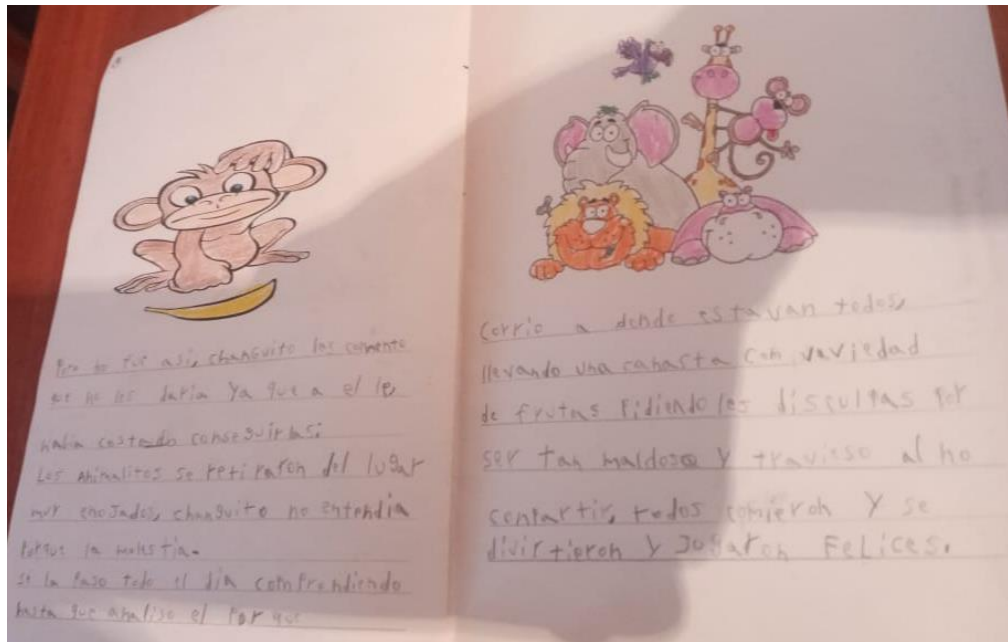 Pero no fue asi, changuito les comento
que no les daria ya que a el le
habia costado conseguirlas.
Los animalitos se retiraron del lugar
muy enojados, changuito no entendia
porque la molestia.
se la paso todo el dia comprendiendo
hasta que analiso el por que
Corrio a donde estavan todos,
llevando una canasta con variedad
de frutas pidiendoles disculpas por
ser tan maldoso y travieso al no
compartir, todos comieron y se
divirtieron y jugaron FeLices.